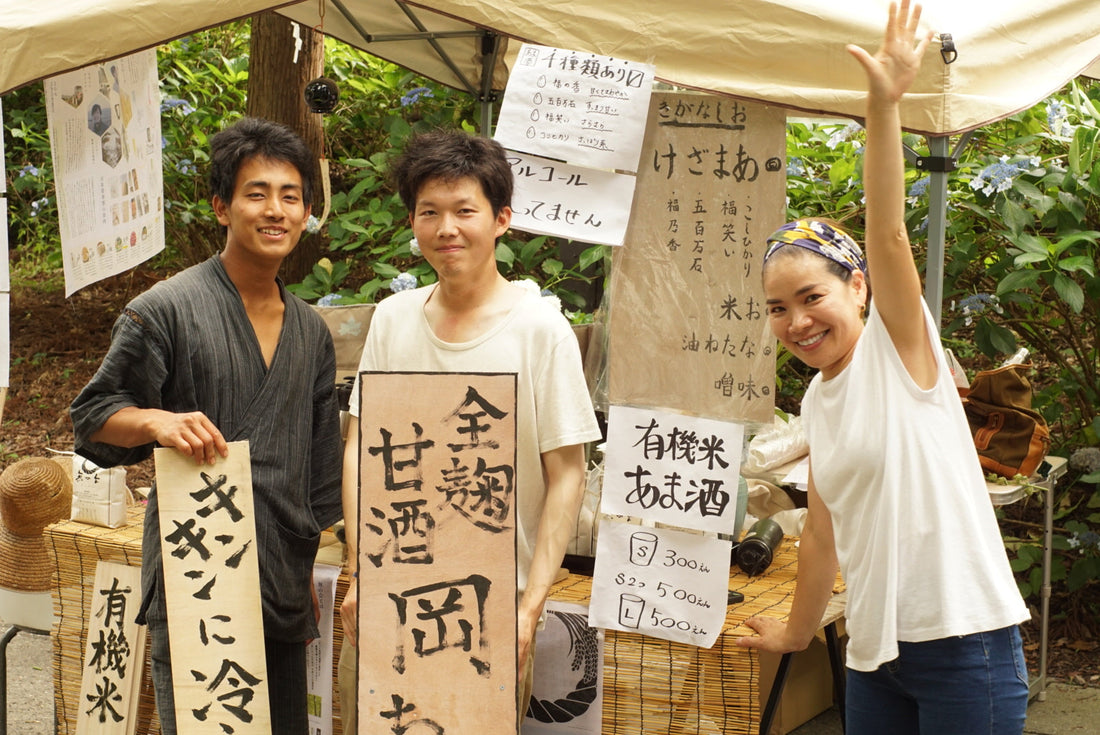 千種類あり
福の香 甘くてさわやか
五百万石 すっきり甘い
福笑い さらさら
コシヒカリ さっぱり系
アルコール
ってません
きがなしお
あまざけ
・こしひかり
福笑い
五百万石
・福乃香
お米
なたね油
味噌
有機米
あま酒
S 300えん
S2つ 500えん
L 500えん
キンキンに冷
全麹
甘酒
岡
わ
有機米